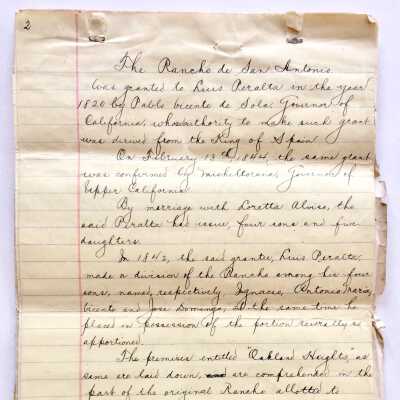 2
The Rancho de San Antonio
was granted to Luis Peralta in the year
1820 by Pablo Vicente de Sola, Governor of
California, whose authority to make such grant
was derived from the King of Spain.
On February 13th 1844, the same grant
was confirmed by Micheltorena, Governor of
Upper California
By marriage with Loretta Alviso, the
said Peralta had issue, four sons and five
daughters.
In 1842, the said grantee, Luis Peralta,
made a division of the Rancho among his four
sons, named, respectively, Ignacio, Antonio Maria,
Vicente and Jose Domingo, at the same time he
placed in possession of the portion severally as
apportioned.
The premises entitled "Oakland Heights," as
same are laid down, are comprehended in the
part of the original Rancho allotted to